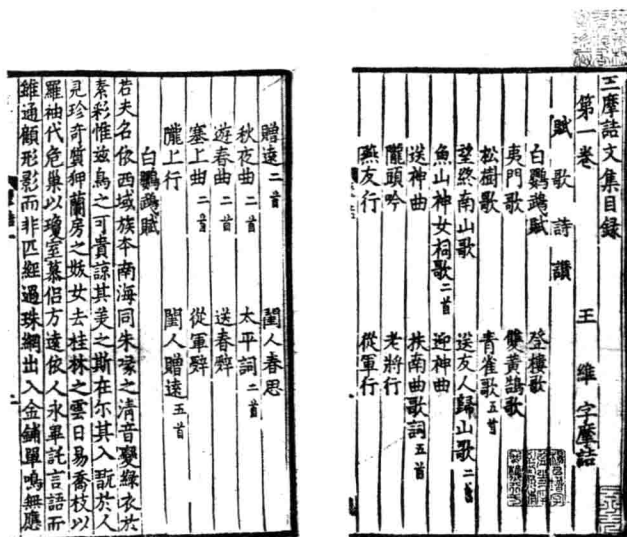 王摩詰文集目録
第一卷 王 維 字摩詰
賦 歌 詩 讚
白鸚鵡賦 登樓歌
夷門歌 雙黃鵠歌
松樹歌 青雀歌五首
望終南山歌 送友人歸山歌二首
魚山神女祠歌二首 迎神曲
送神曲 扶南曲歌詞五首
隴頭吟 老將行
燕支行 從軍行
贈遠二首 閨人春思
秋夜曲二首 太平詞二首
遊春曲二首 送春辤
塞上曲二首 從軍辤
隴上行 閨人贈遠五首
白鸚鵡賦
若夫名依西域族本南海同朱喙之清音變綠衣於
素彩惟兹鳥之可貴諒其美之斯在尔其入翫於人
見珍奇質狎蘭房之妖女去桂林之雲日易喬枝以
羅袖代危巢以瓊室慕侣方遠依人永畢託言語而
雖通顧形影而非匹經過珠網出入金鋪單鳴無應